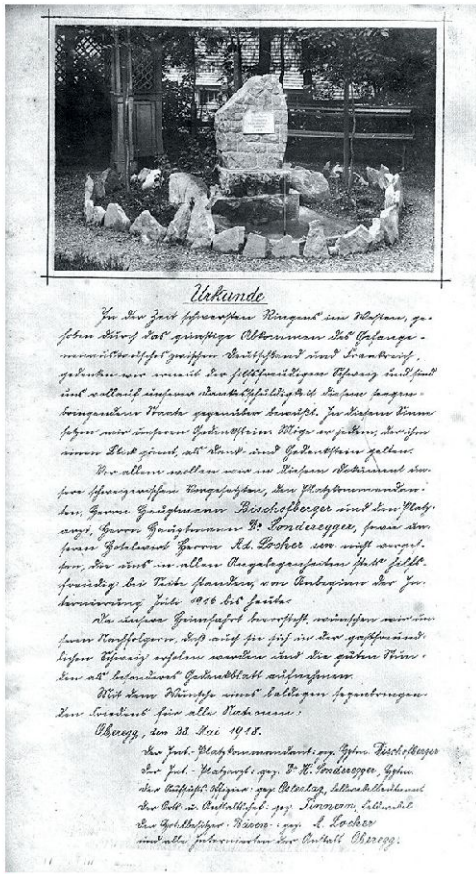 Urkunde
In der Zeit schwersten Ringens im Westen, ge-
hoben durch das günstige Abkommen des Gefange-
nenaustausches zwischen Deutschland und Frankreich,
gedenken wir erneut der hilfsfreudigen Schweiz und sind
uns vollauf unserer Dankesschuldigkeit diesem segen-
bringenden Staate gegenüber bewußt. In diesem Sinne
setzen wir unseren Gedenkstein. Möge er jedem, der ihm
einen Blick gönnt, als Dank- und Gedenkstein gelten.
Vor allem wollen wir in diesem Dokument un-
sere schweizerischen Vorgesetzten, den Platzkommandan-
ten, Herrn Hauptmann Bischofberger und den Platz-
arzt, Herrn Hauptmann Dr. Sonderegger, sowie un-
seren Hotelwirt Herrn Ad. Locher nicht verges-
sen, die uns in allen Angelegenheiten stets hilfs-
freudig bei Seite standen, von Anbeginn der In-
ternierung Juli 1916 bis heute.
Da unsere Heimfahrt bevorsteht, wünschen wir un-
sern Nachfolgern, daß auch sie sich in der gastfreund-
lichen Schweiz erholen werden und die guten Stun-
den als besonderes Gedenkblatt aufnehmen.
Mit dem Wunsche eines baldigen segenbringen-
den Friedens für alle Nationen:
Oberegg, den 28. Mai 1918.
Der Int.-Platzkommandant: gez. Hptm. Bischofberger
Der Int.-Platzarzt: gez. Dr. H. Sonderegger, Hptm.
Der Aufsichts-Offizier: gez. Feldwebelleutnant
Der Ort- u. Anstaltschef: gez. Feldwebel
Der Hotelbesitzer: gez. A. Locher
und alle Internierten der Anstalt Oberegg.